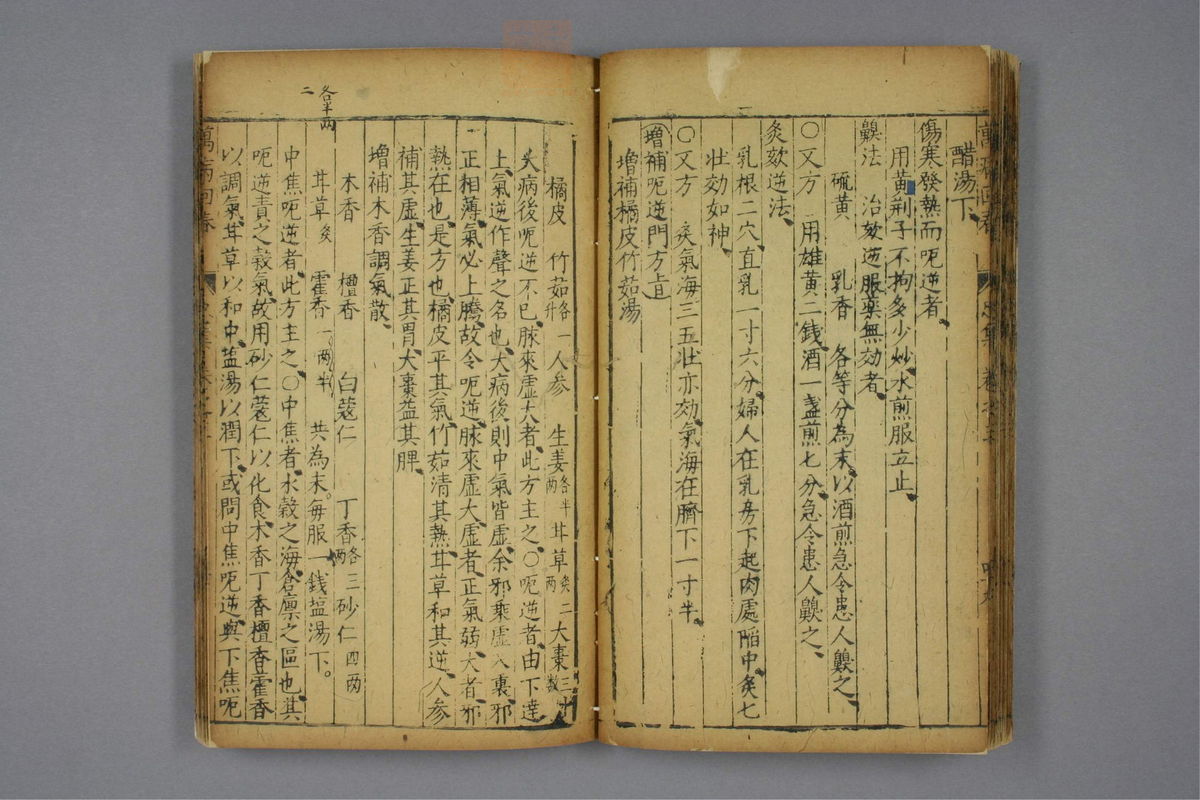 醋湯下
傷寒發熱而呃逆者
用黃荆子不拘多少炒水煎服立止
齅法　治欬逆服藥無効者
硫黃　乳香　各等分為末以酒煎急令患人齅之
〇又方　用雄黃二錢酒一盞煎七分急令患人齅之
灸欬逆法
乳根二穴直乳一寸六分婦人在乳房下起肉處陷中灸七
壯効如神
〇又方　灸氣海三五壯亦効氣海在臍下一寸半
增補呃逆門方
增補橘皮竹茹湯
橘皮　竹茹各一升　人参　生姜各半两　甘草灸二两　大棗三十数
大病後呃逆不已脉來虛大者此方主之〇呃逆者由下達
上氣逆作聲之名也大病後則中氣皆虛余邪乘虛入裏邪
正相薄氣必上騰故令呃逆脉來虛大虛者正氣弱大者邪
熱在也是方也橘皮平其氣竹茹清其熱甘草和其逆人参
補其虛生姜正其胃大棗益其脾
增補木香調氣散
各半两
二
木香　檀香　白蔻仁　丁香各三两　砂仁四两
甘草灸　霍香一两半　共為末每服一錢塩湯下
中焦呃逆者此方主之〇中焦者水穀之海倉廩之區也其
呃逆責之穀氣故用砂仁蔻仁以化食木香丁香檀香霍香
以調氣甘草以和中盐湯以潤下或問中焦呃逆與下焦呃
萬病回春